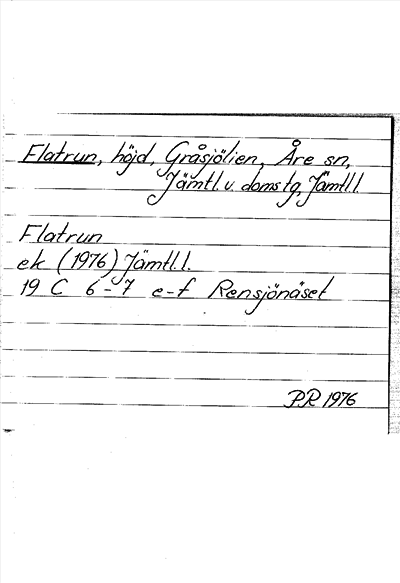 Flatrun, höjd, Gråsjölien, Åre sn,
Jämtl. v. domstg, Jämtl.l.
Flatrun
ek (1976) Jämtl.l.
19 C 6-7 e-f Rensjönäset
PR 1976